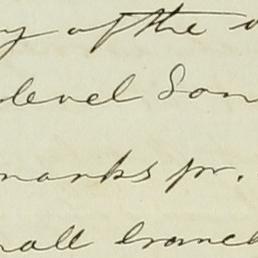 y of the
level Son
marks pr.
mall branch